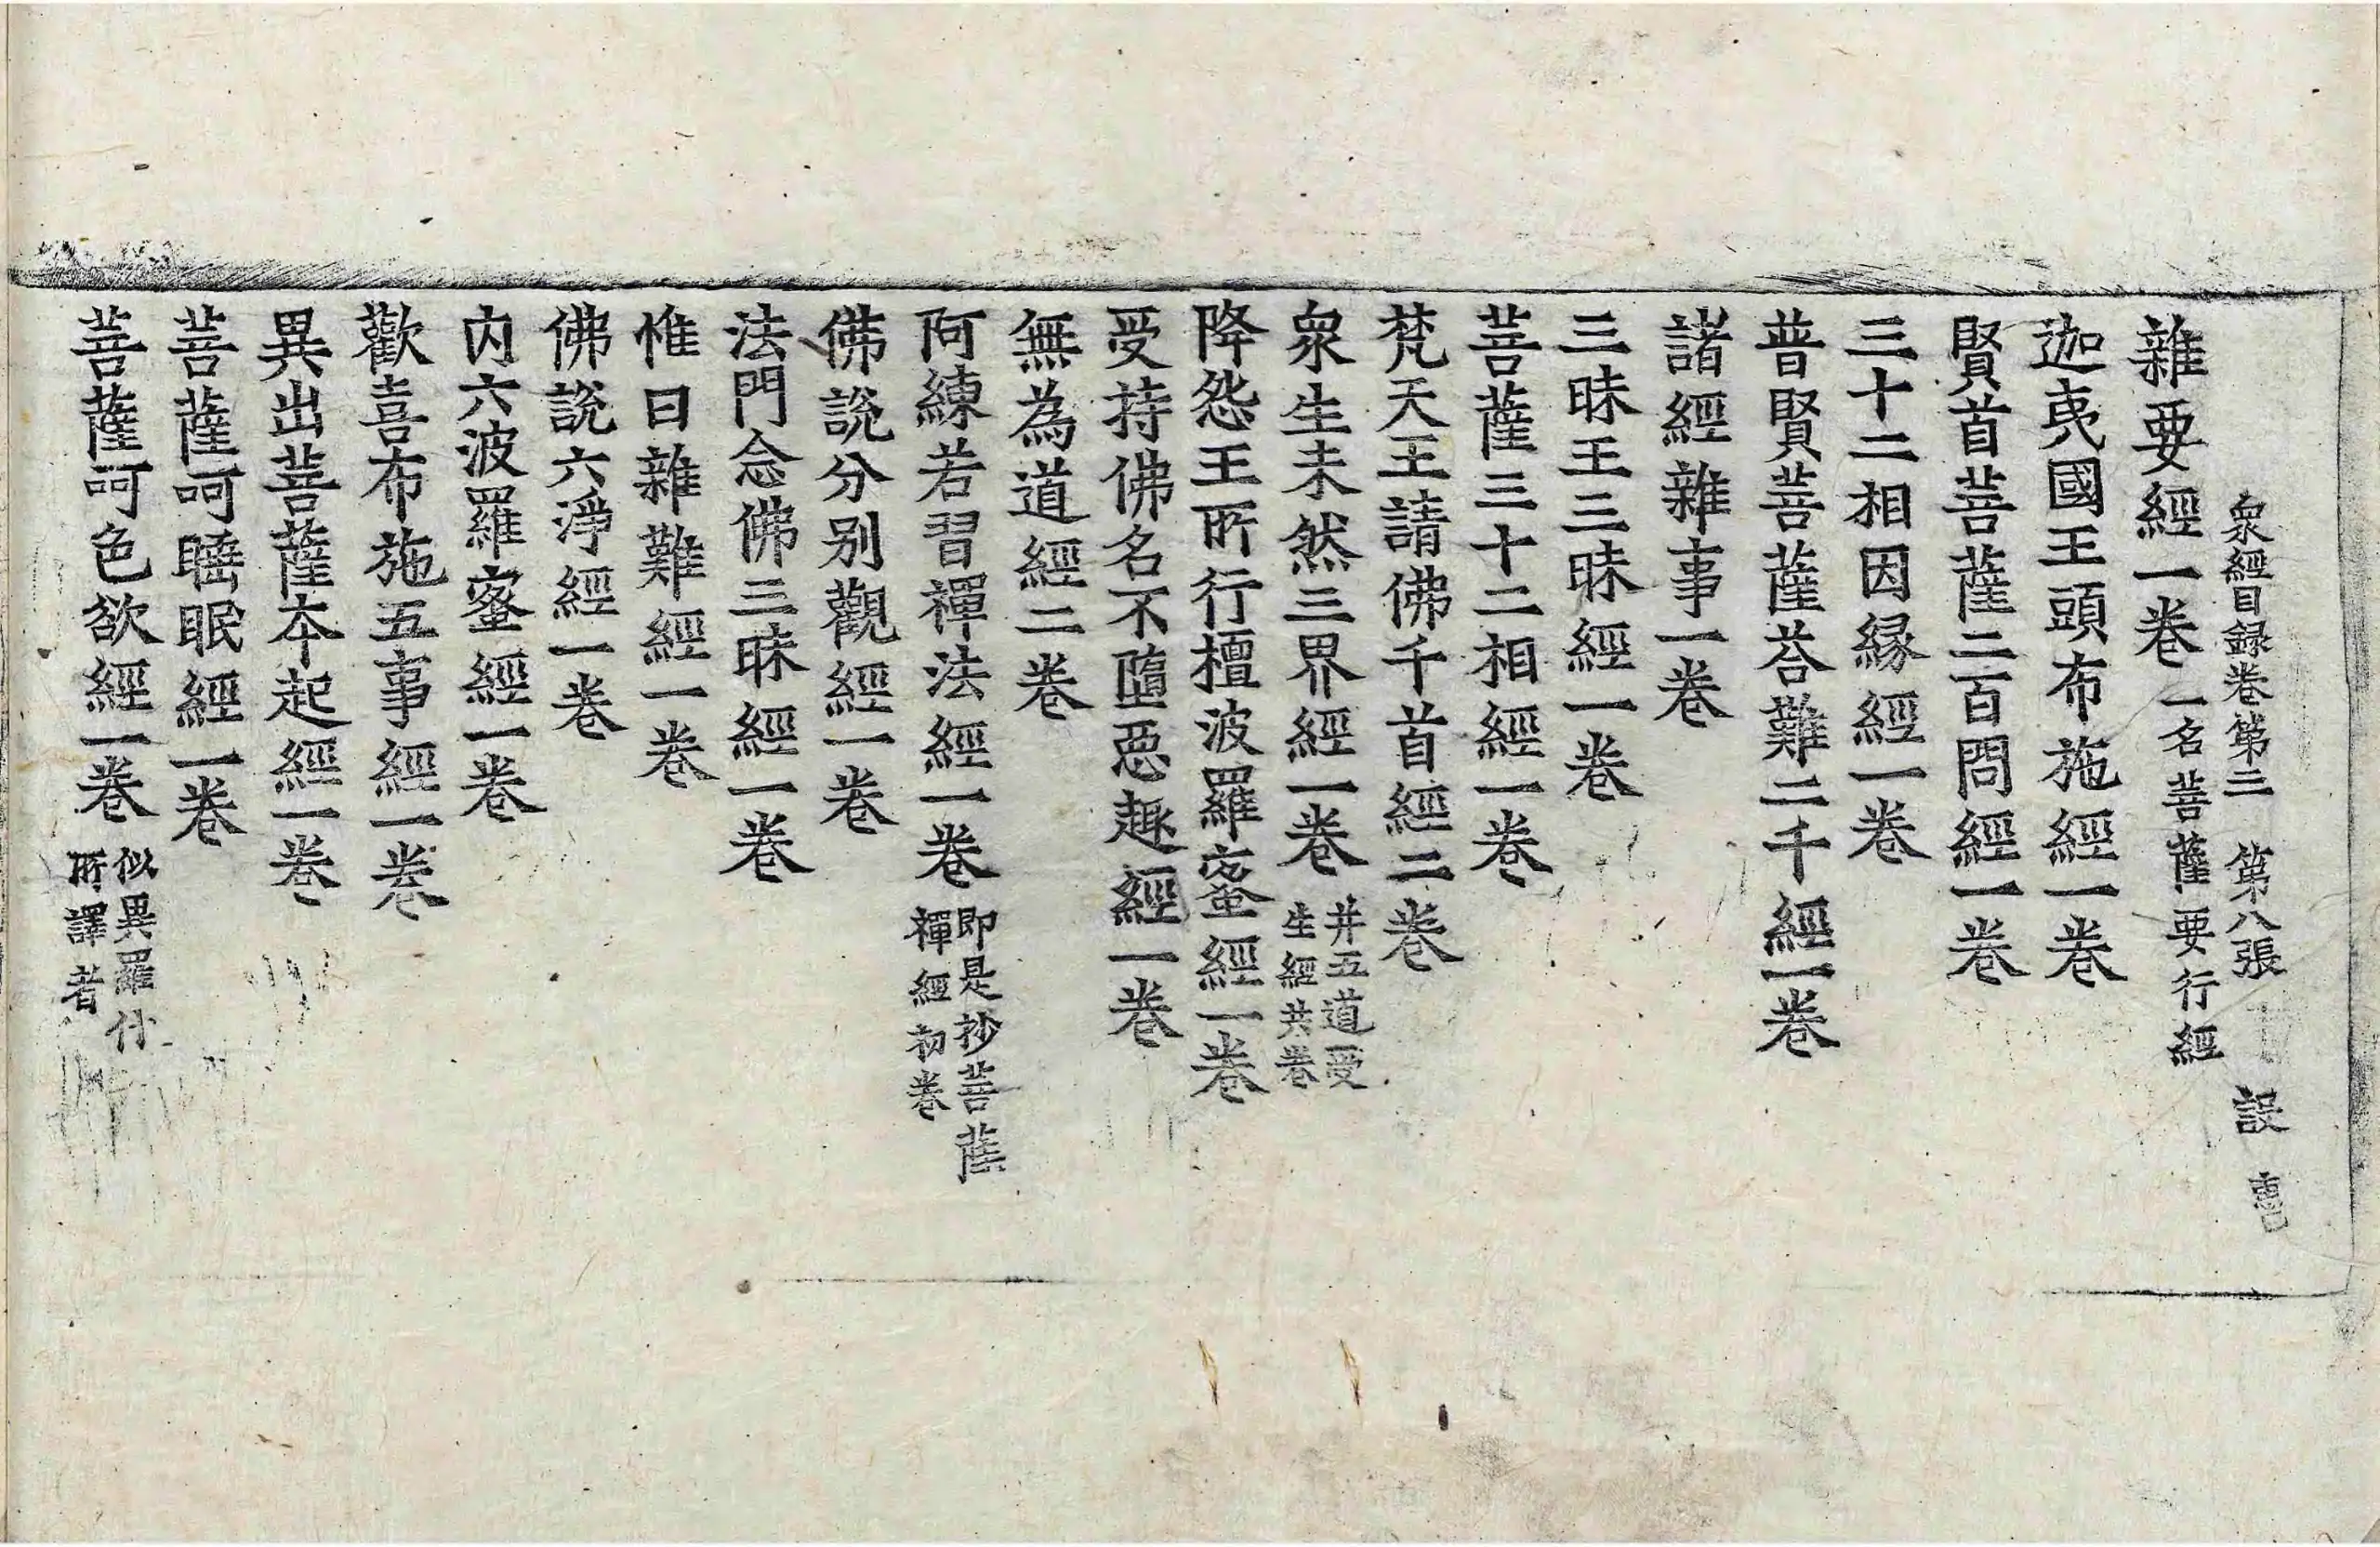 衆經目録卷第三　第八張　設
雜要經一卷 一名菩薩要行經
迦夷國王頭布施經一卷
賢首菩薩二百問經一卷
三十二相因縁經一卷
普賢菩薩荅難二千經一卷
諸經雜事一卷
三昧王三昧經一卷
菩薩三十二相經一卷
梵天王請佛千首經二卷
衆生未然三界經一卷 并五道受生經共卷
降怨王所行檀波羅蜜經一卷
受持佛名不墮惡趣經一卷
無為道經二卷
阿練若習禪法經一卷 即是抄菩薩禪經初卷
佛說分别觀經一卷
法門念佛三昧經一卷
惟日雜難經一卷
佛說六淨經一卷
内六波羅蜜經一卷
歡喜布施五事經一卷
異出菩薩本起經一卷
菩薩呵睡眠經一卷
菩薩呵色欲經一卷 似異羅什所譯者